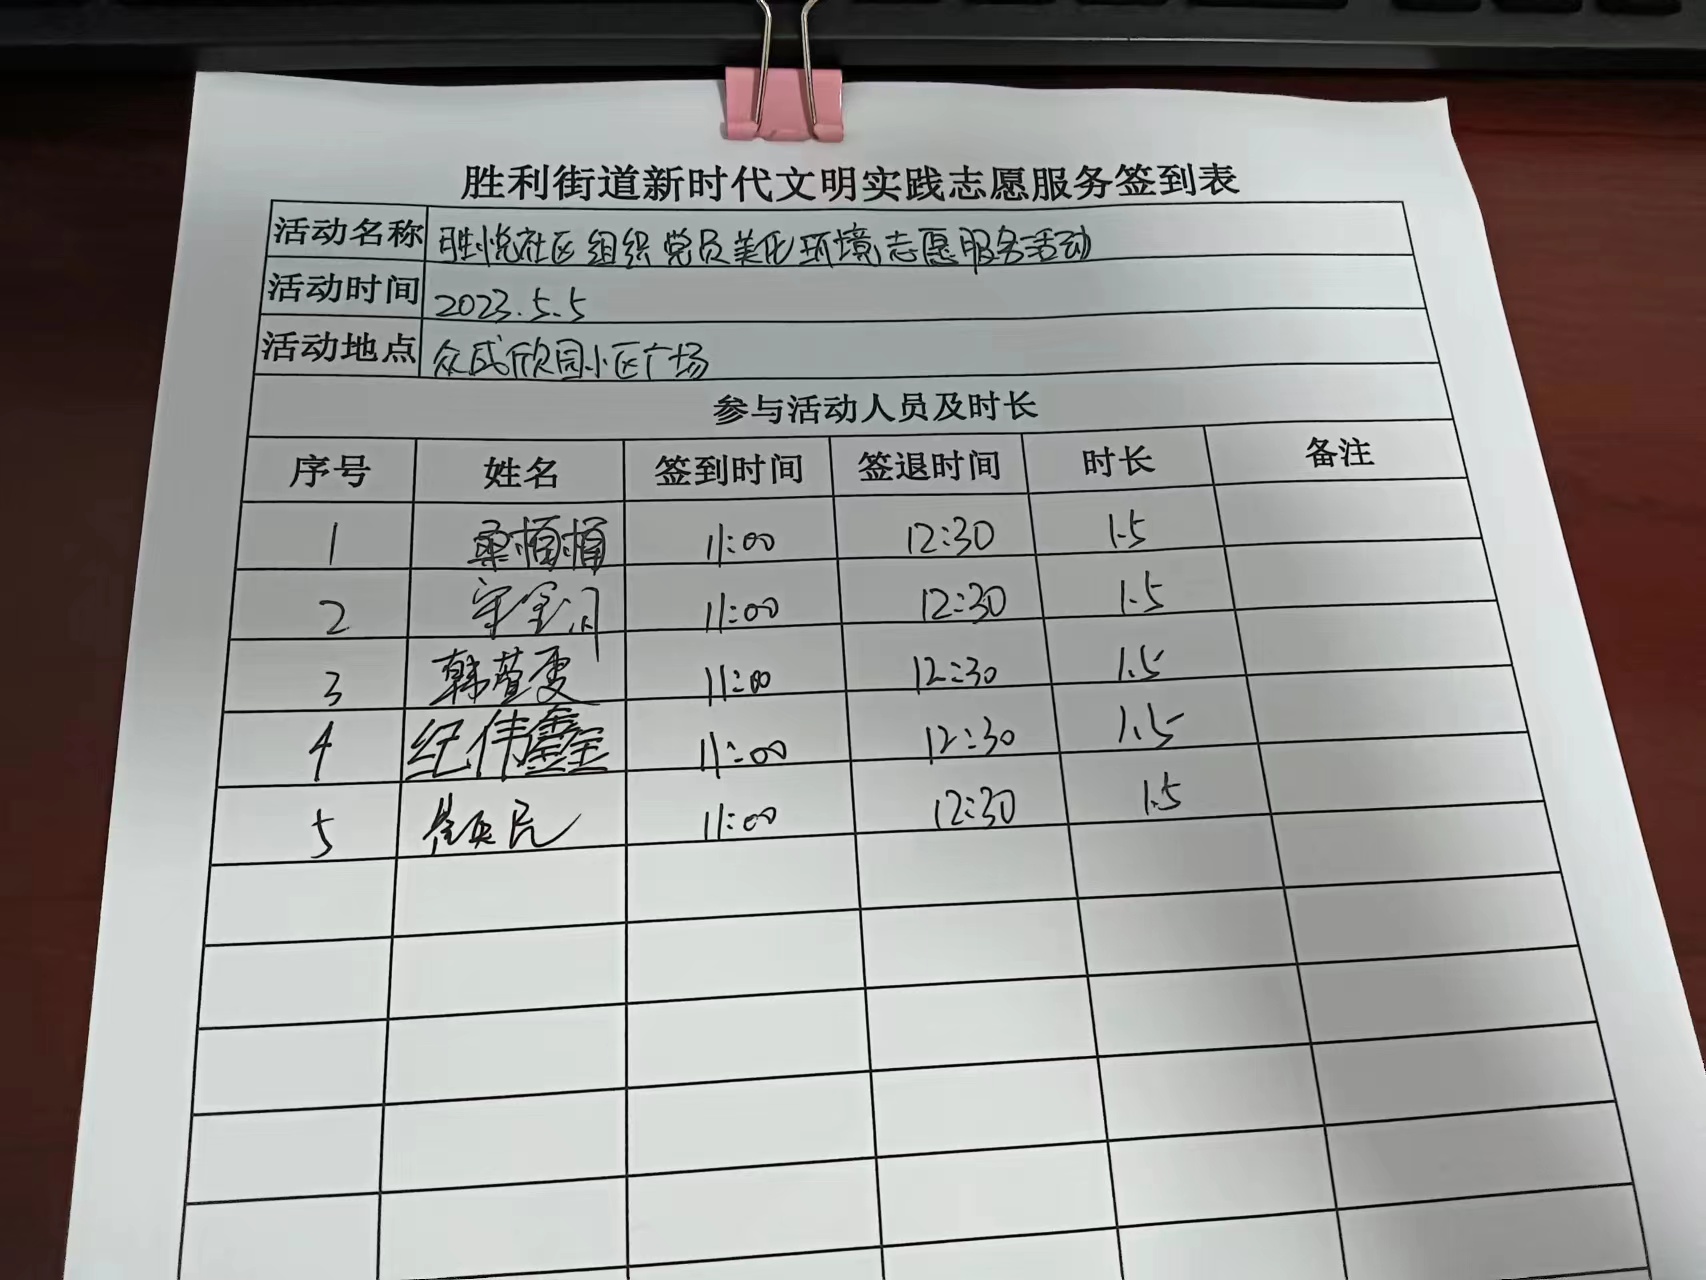 胜利街道新时代文明实践志愿服务签到表
活动名称 胜悦社区组织党员美化环境志愿服务活动
活动时间 2023.5.5
活动地点 众成欣园小区广场
参与活动人员及时长
序号 姓名 签到时间 签退时间 时长 备注
1 11:00 12:30 1.5
2 11:00 12:30 1.5
3 韩萱雯 11:00 12:30 1.5
4 纪伟鑫 11:00 12:30 1.5
5 11:00 12:30 1.5